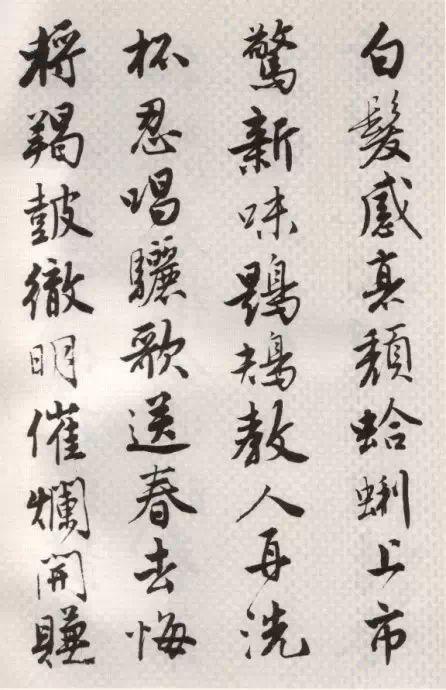 白髮感衰頹蛤蜊上市
驚新味鶗鴂教人再洗
杯忍唱驪歌送春去悔
將羯皷徹明催爛開賺